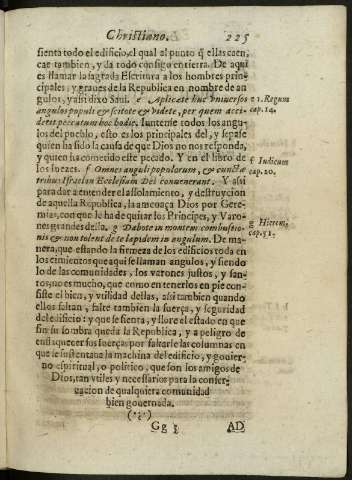 Christiano. 225
sienta todo el edificio, el qual al punto q̃ ellas caen,
cae tambien, y da todo consigo en tierra. De aqui
es llamar la sagrada Escritura a los hombres prin-
cipales, y graues de la Republica en nombre de an
gulos, y assi dixo Saul. e Aplicate huc vniuersos
angulos populi & scitote & videte, per quem acci
derit peccatum hoc hodie. Iuntense todos los angu
los del pueblo, esto es los principales del, y sepase
quien ha sido la causa de que Dios no nos responda,
y quien ha cometido este pecado. Y en el libro de
los juezes. f Omnes anguli populorum, & cunctæ
tribus Israel in Ecclesiam Dei conuenerunt. Y assi
para dar a entender el assolamiento, y destruycion
de aquella Republica, la amenaça Dios por Gere-
mias, con que le ha de quitar los Principes, y Varo-
nes grandes della. g Dabo te in montem combustio-
nis & non tolent de te lapidem in angulum. De ma-
nera, que estando la firmeza de los edificios toda en
los cimientos que aqui se llaman angulos, y siendo
lo de las comunidades, los varones justos, y san-
tos, no es mucho, que como en tenerlos en pie con-
siste el bien, y vtilidad dellas, assi tambien quando
ellos faltan, falte tambien la fuerça, y seguridad
del edificio: y que se sienta, y llore el estado en que
sin su sombra queda la Republica, y a peligro de
enflaquecer sus fuerças por faltarle las columnas en
que se sustentaua la machina del edificio, y gouier-
no espiritual, o politico, que son los amigos de
Dios, tan vtiles y necessarios para la conser-
uacion de qualquiera comunidad
bien gouernada.
e 1. Regum
cap. 14.
f Iudicum
cap. 20.
g Hierem.
cap. 51.
Gg AD